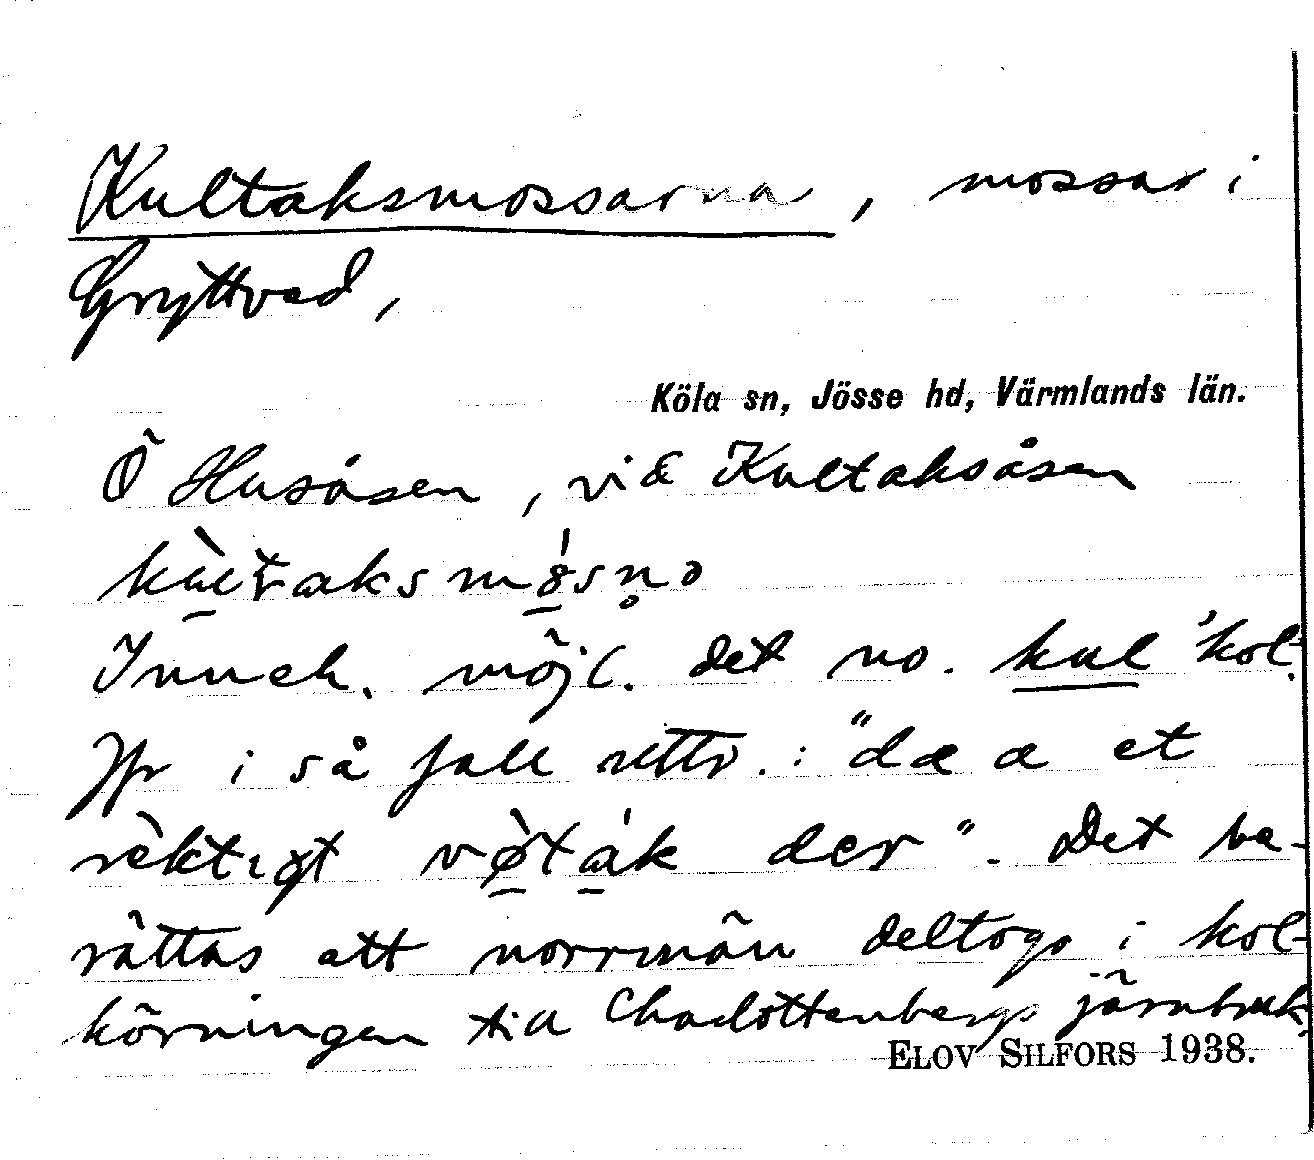 Kultaksmossarna, mossar i
Gryttved,
Köla sn, Jösse hd, Värmlands län.
Ö Husåsen, vid Kultaksåsen
Inneh. möjl. det no. kul 'kol'.
Jfr i så fall uttr.: "dæ æ et
rèktıgt vø̀ták der". Det be-
rättas att norrmän deltogo i kol-
körningen till Charlottenbergs järnbruk.
ELOV SILFORS 1938.